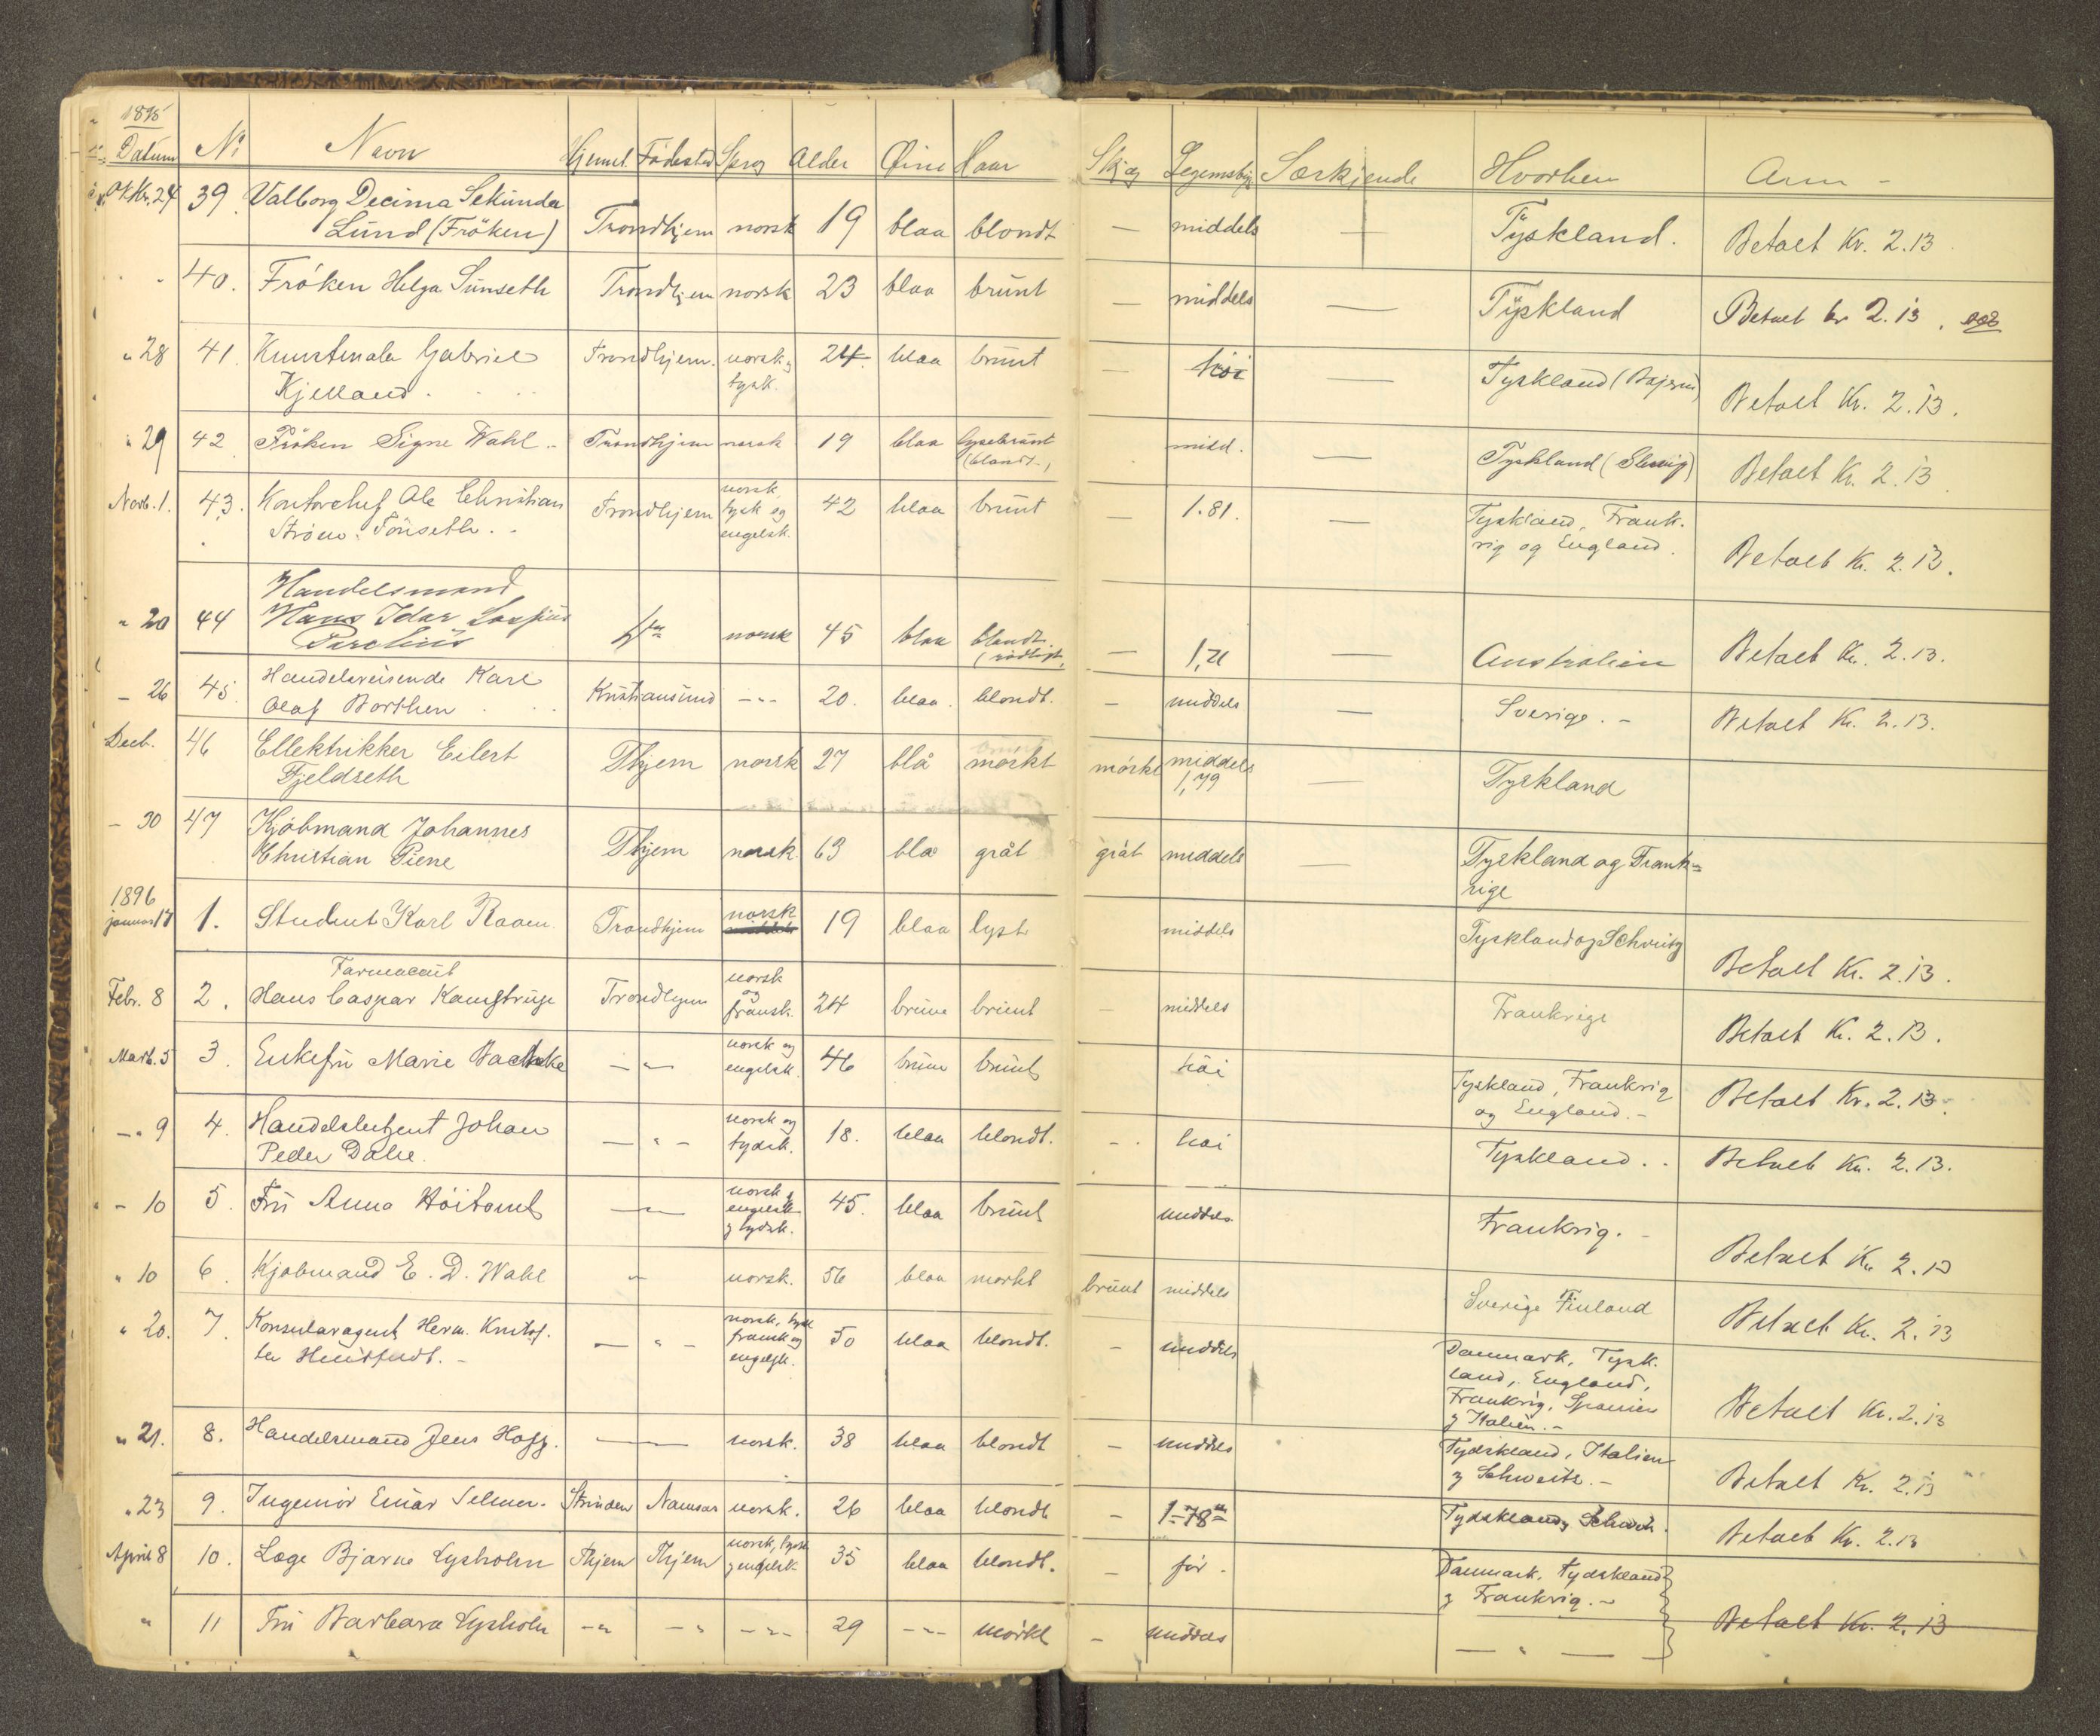 1895
Datum No Navn Hjemst. Födested Sprog Alder Öine Haar Skjæg Legemsbyg Særkjende Hvorhen Anm -
Oktbr. 24 39. Valborg Decima Sekunda
Lund (Fröken) Trondhjem norsk 19 blaa blondt — middels — Tyskland. Betalt Kr. 2.13.
" " 40. Fröken Helga Sünseth Trondhjem norsk 23 blaa brunt — middels — Tyskland Betalt kr 2.13.
" 28 41. Kunstmaler Gabriel
Kjelland Trondhjem. norsk og tysk. 24. blaa brunt — höi — Tyskland (Bajern) Betalt Kr. 2.13.
" 29 42 Fröken Signe Wahl Trondhjem norsk 19 blaa lysebrunt (blondt) midd. — Tyskland Betalt Kr. 2.13
Novb. 1. 43. Kontorchef Ole Christian
Ström Tönseth Trondhjem norsk, tysk og engelsk. 42 blaa brunt — 1.81. — Tyskland, Frank-
rig og England. Betalt Kr. 2.13.
" 20 44 Handelsmand
Hans Idar norsk 45 blaa blondt (rödligt) — 1,71 — Australien Betalt Kr. 2.13.
- 26 45 Handelsreisende Karl
Olaf Borthen Kristiansund -"- 20. blaa. blondt. — middels — Sverige. - Betalt Kr. 2.13.
Decb. 46 Ellektrikker Eilert
Fjeldseth Thjem norsk 27 blå mörkt mörkt middels 1,79 — Tyskland
- 30 47 Kjöbmand Johannes
Christian Piene Thjem norsk 63 blå gråt gråt middels — Tyskland og Frank=
rige
1896
januar 17 1. Student Karl Raaen Trondhjem norsk 19 blaa lyst middels Tyskland og Schweitz Betalt Kr. 2.13.
Febr. 8 2. Farmaceut
Hans Caspar Kamstrup Trondhjem norsk og fransk. 24 brune brunt - middels Frankrige Betalt Kr. 2.13.
Marts. 5 3. Enkefru Marie Bachke -"- norsk og engelsk. 46 brune brunt höi Tyskland, Frankrig
og England. - Betalt Kr. 2.13.
-" 9 4. Handelsbetjent Johan
Peder Dahl. — " - norsk og tydsk. 18. blaa blondt. - höi Tyskland. Betalt Kr. 2.13.
" - 10 5. Fru Anna Höitomt -"- norsk, engelsk og tydsk. 45. blaa brunt middels Frankrig. - Betalt Kr. 2.13
" 10 6. Kjöbmand E. D. Wahl " norsk. 56 blaa mörkt brunt middels Sverige Finland Betalt Kr. 2.13
" 20. 7. Konsularagent Herm. Kristof-
fer — " - norsk, tysk fransk og engelsk. 50 blaa blondt. - middels Danmark, Tysk-
land, England,
Frankrig, Spanien
og Italien. - Betalt Kr. 2.13
" 21. 8. Handelsmand Jens Hoff. -"- norsk. 38 blaa blondt - middels Tydskland, Italien
og Schweitz. - Betalt Kr. 2.13
" 23 9. Ingeniör Einar Selmer. Strinden Namsos norsk. 26 blaa blondt - 1.78 m Tydskland og Schweitz. Betalt Kr. 2.13
April 8 10. Læge Bjarne Lysholm Thjem Thjem norsk, tysk og engelsk. 35 blaa blondt. - för. Danmark, Tydskland
og Frankrig. -
" 11 Fru Barbara Lysholm -"- -"- -"- 29 -"- mörkt - middels — " — Betalt Kr. 2.13